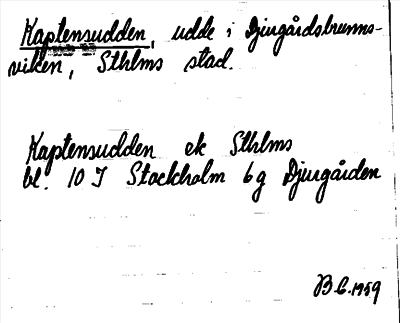 Kaptensudden, udde i Djurgårdsbrunns-
viken, Sthlms stad.
Kaptensudden ek Sthlms
bl. 10 I Stockholm 6g Djurgården
B.C. 1959